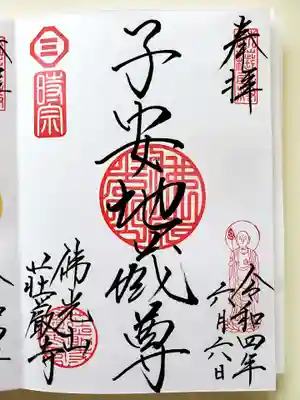 奉拝
令和四年
六月六日
子安地蔵尊
時宗
佛光山
荘厳寺